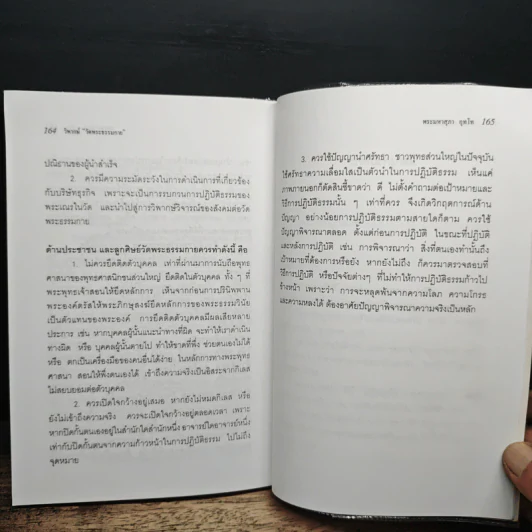 164 วิพากษ์ "วัดพระธรรมกาย"
ปณิธานของผู้นำสำเร็จ
2. ควรมีความระมัดระวังในการดำเนินการที่เกี่ยวข้อง
กับบริษัทธุรกิจ เพราะจะเป็นการรบกวนการปฏิบัติธรรมของ
พระเณรในวัด และนำไปสู่การวิพากษ์วิจารณ์ของสังคมต่อวัด
พระธรรมกาย
ด้านประชาชน และลูกศิษย์วัดพระธรรมกายควรทำดังนี้ คือ
1. ไม่ควรยึดติดตัวบุคคล เท่าที่ผ่านมาการนับถือพุทธ
ศาสนาของพุทธศาสนิกชนส่วนใหญ่ ยึดติดในตัวบุคคล ทั้ง ๆ ที่
พระพุทธเจ้าสอนให้ยึดหลักการ เห็นจากก่อนการปรินิพพาน
พระองค์ตรัสให้พระภิกษุสงฆ์ยึดหลักการของพระธรรมวินัย
เป็นตัวแทนของพระองค์ การยึดติดตัวบุคคลมีผลเสียหลาย
ประการ เช่น หากบุคคลผู้นั้นแนะนำทางที่ผิด จะทำให้เราดำเนิน
ทางผิด หรือ บุคคลผู้นั้นตายไป ทำให้ขาดที่พึ่ง ช่วยตนเองไม่ได้
หรือ ตกเป็นเครื่องมือของคนอื่นได้ง่าย ในหลักการทางพระพุทธ
ศาสนา สอนให้พึ่งตนเองได้ เข้าถึงความเป็นอิสระจากกิเลส
ไม่สยบยอมต่อตัวบุคคล
2. ควรเปิดใจกว้างอยู่เสมอ หากยังไม่หมดกิเลส หรือ
ยังไม่เข้าถึงความจริง ควรจะเปิดใจกว้างอยู่ตลอดเวลา เพราะ
หากปิดกั้นตนเองอยู่ในสำนักใดสำนักหนึ่ง อาจารย์ใดอาจารย์หนึ่ง
เท่ากับปิดกั้นตนจากความก้าวหน้าในการปฏิบัติธรรม ไปไม่ถึง
จุดหมาย
พระมหาสุภา 165
3. ควรใช้ปัญญานำศรัทธา ชาวพุทธส่วนใหญ่ในปัจจุบัน
ใช้ศรัทธาความเลื่อมใสเป็นตัวนำในการปฏิบัติธรรม เห็นแค่
ภาพภายนอกก็ตัดสินชี้ขาดว่า ดี ไม่ตั้งคำถามต่อเป้าหมายและ
วิธีการปฏิบัติธรรมนั้น ๆ เท่าที่ควร จึงเกิดวิกฤตการณ์ด้าน
ปัญญา อย่างน้อยการปฏิบัติธรรมตามสายใดก็ตาม ควรใช้
ปัญญาพิจารณาตลอด ตั้งแต่ก่อนการปฏิบัติ ในขณะที่ปฏิบัติ
และหลังการปฏิบัติ เช่น การพิจารณาว่า สิ่งที่ตนเองทำนั้นถึง
เป้าหมายที่ต้องการหรือยัง หากยังไม่ถึง ก็ควรมาตรวจสอบที่
วิธีการปฏิบัติ หรือปัจจัยต่างๆ ที่ไม่ทำให้การปฏิบัติธรรมก้าวไป
ข้างหน้า เพราะว่า การจะหลุดพ้นจากความโลภ ความโกรธ
และความหลงได้ ต้องอาศัยปัญญาพิจารณาความจริงเป็นหลัก